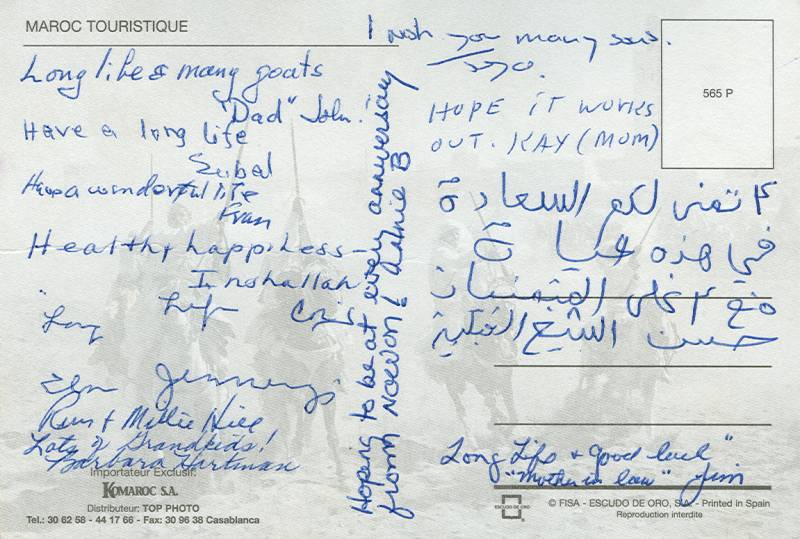 MAROC TOURISTIQUE
Long life & many goats
"Dad" John!
Have a long life
Have a wonderful life
Fran
Health & happiness -
Inshallah
"Long Life
Jennings
Russ & Millie Hill
Lots of Grandkids!
Barbara Hartman
Importateur Exclusif:
KOMAROC S.A.
Distributeur: TOP PHOTO
Tel.: 30 62 58 - 44 17 66 - Fax: 30 96 38 Casablanca
Hoping to be at every anniversary
from NOWON! Annie B
I wish you many sons.
565 P
HOPE IT WORKS
OUT. KAY (MOM)
نتمنى لكم السعادة
في هذه
مع
حسن الشيخ
Long Life & Good luck"
"Mother in law" Jim
ESCUDO DE ORO
© FISA - ESCUDO DE ORO, S.A. - Printed in Spain
Reproduction interdite